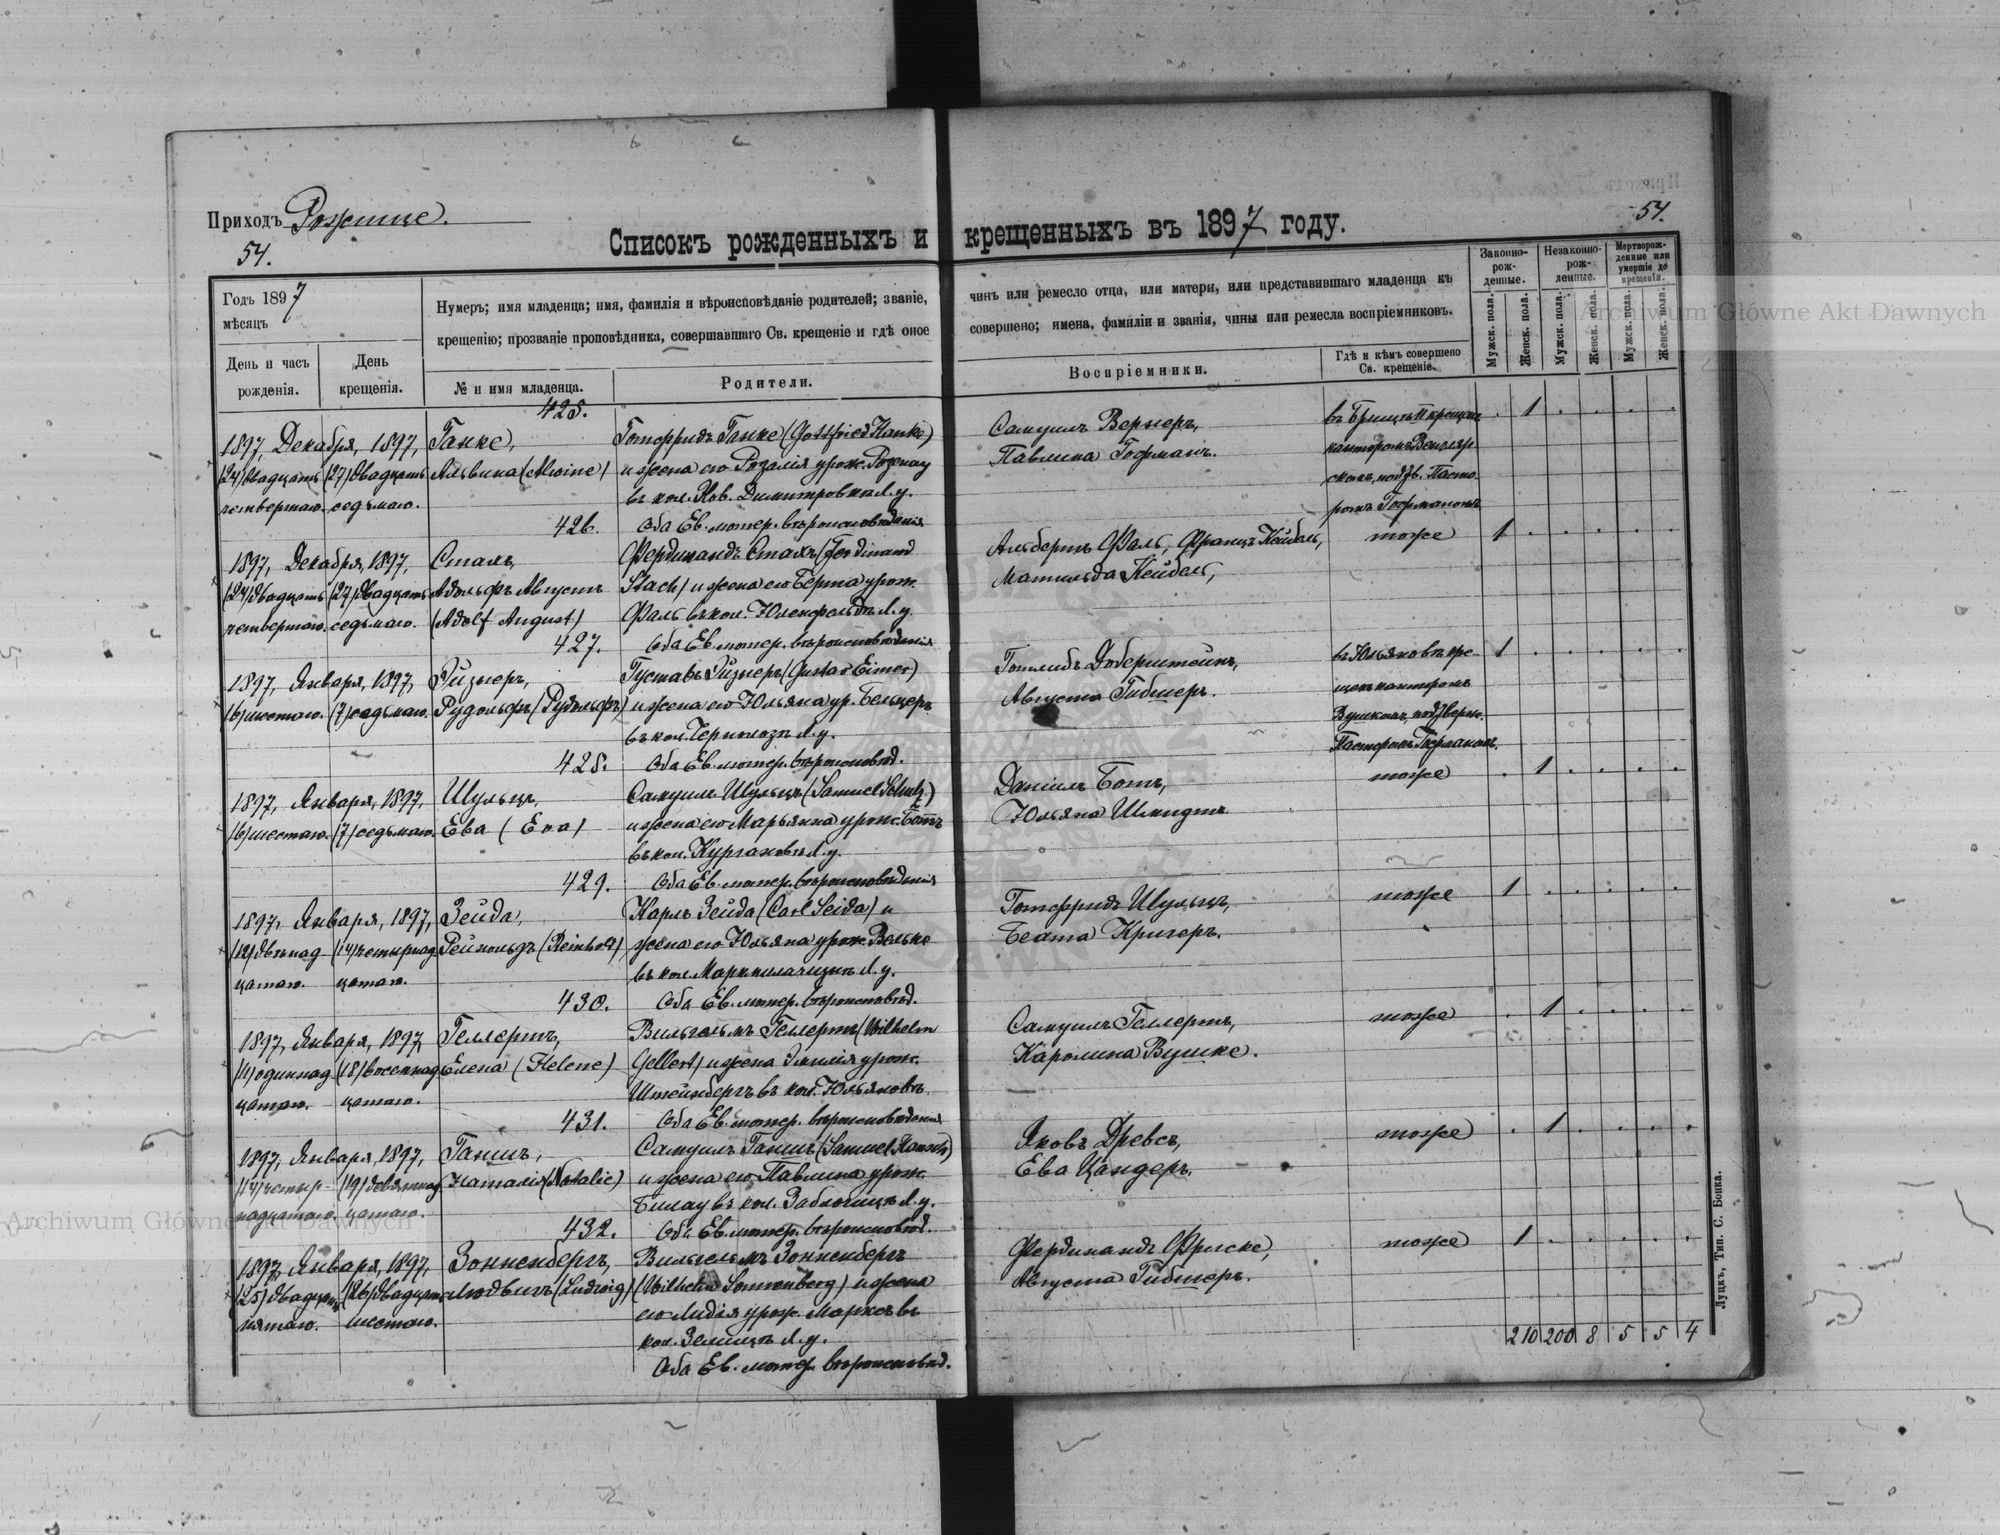 Приходъ Рожище.
54.
54.
Списокъ рожденныхъ и крещенныхъ въ 1897 году.
Годъ 1897
мѣсяцъ
День и часъ рожденія.
День крещенія.
Нумеръ; имя младенца; имя, фамилія и вѣроисповѣданіе родителей; званіе, чинъ или ремесло отца, или матери, или представившаго младенца къ
крещенію; прозваніе проповѣдника, совершавшаго Св. крещеніе и гдѣ оное совершено; имена, фамиліи и званія, чины или ремесла воспріемниковъ.
№ и имя младенца.
Родители.
Воспріемники.
Гдѣ и кѣмъ совершено Св. крещеніе.
Законно-рож-денные.
Незаконно-рож-денные.
Мертворож-денные или умершіе до крещенія.
Мужск. пола.
Женск. пола.
Мужск. пола.
Женск. пола.
Мужск. пола.
Женск. пола.
425.
1897, Декабря, 1897,
(24) двадцать (27) двадцать
четвертаго. седьмаго.
Ганке,
Альвина (Alwine)
Готфридъ Ганке (Gottfried Hanke)
и жена его Розалія урож. Рознау
въ кол. Нов. Димитровка Л. у.
Оба Ев. лютер. вѣроисповѣданія
Самуилъ Вернеръ,
Павлина Гофманъ.
канторомъ
Пасто-
ромъ Гофманомъ
1
426.
1897, Декабря, 1897,
(24) двадцать (27) двадцать
четвертаго. седьмаго.
Сталь,
Адольфъ Августъ
(Adolf August)
Фердинандъ Сталь (Ferdinand
Stach) и жена его Берта урож.
Фаль въ кол. Юленфельдъ Л. у.
Оба Ев. лютер. вѣроисповѣданія
Альбертъ Фаль, Францъ Кейбель,
Матильда Кейбель,
тоже
1
427.
1897, Января, 1897,
(6) шестаго. (7) седьмаго.
Эйзнеръ,
Рудольфъ (Рудольфъ)
Густавъ Эйзнеръ (Gustav Eisner)
и жена его Юльяна ур. Бельцеръ
въ кол. Чернолозы Л. у.
Оба Ев. лютер. вѣроисповѣд.
Готлибъ Доберштейнъ,
Августа Гибнеръ.
въ Юльяновѣ кре-
щенъ канторомъ
Вушкомъ, подтвержд.
Пасторомъ Гофманомъ.
1
428.
1897, Января, 1897,
(6) шестаго. (7) седьмаго.
Шульцъ,
Ева (Eva)
Самуилъ Шульцъ (Samuel Schulz)
и жена его Марьянна урож. Ботъ
въ кол. Кургановѣ Л. у.
Оба Ев. лютер. вѣроисповѣданія
Даніилъ Ботъ,
Юльяна Шмидтъ.
тоже
1
429.
1897, Января, 1897,
(12) двѣнад- (14) четырнад-
цатаго. цатаго.
Зейда,
Рейнольдъ (Reinhold)
Карлъ Зейда (Carl Seida) и
жена его Юльяна урож. Вельке
Оба Ев. лютер. вѣроисповѣд.
Готфридъ Шульцъ,
Беата Кригеръ.
тоже
1
430.
1897, Января, 1897,
(11) одиннад- (18) восемнад-
цатаго. цатаго.
Геллертъ,
Елена (Helene)
Вильгельмъ Геллертъ (Wilhelm
Gellert) и жена Эмилія урож.
Штейнбергъ въ кол. Юльяновъ
Оба Ев. лютер. вѣроисповѣданія
Самуилъ Геллертъ,
Каролина Вушке.
тоже
1
431.
1897, Января, 1897,
(14) четыр- (19) девятнад-
надцатаго. цатаго.
Ганшъ,
Наталія (Natalie)
Самуилъ Ганшъ (Samuel Hansch)
и жена его Павлина урож.
Билау въ кол. Заболотцы Л. у.
Оба Ев. лютер. вѣроисповѣд.
Яковъ Древсъ,
Ева Цандеръ.
тоже
1
432.
1897, Января, 1897,
(25) двадцать (26) двадцать
пятаго. шестаго.
Зонненбергъ,
Людвигъ (Ludwig)
Вильгельмъ Зонненбергъ
(Wilhelm Sonnenberg) и жена
его Лидія урож. Марксъ въ
кол. Земицъ Л. у.
Оба Ев. лютер. вѣроисповѣд.
Фердинандъ Фриске,
Августа Гибнеръ.
тоже
1
210 200 8 5 5 4
Луцкъ, Тип. С. Бонка.
Archiwum Główne Akt Dawnych
Archiwum Główne Akt Dawnych